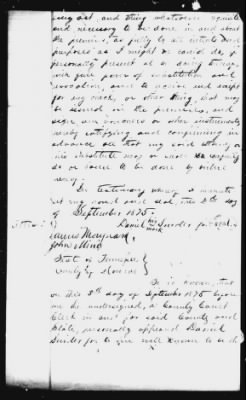 every act, and thing whatsoever requisite
and necessary to be done in and about
the premises, as fully to all intents and
purposes as I might or could do, if
personally present at the doing thereof,
with full power of substitution and
revocation, and to receive and
for me any, or other thing, that may
be in the premises, and to
sign any vouchers or other instruments
hereby ratifying and confirming in
advance all that my said attorney or
his substitute may or shall lawfully
do or cause to be done by virtue
hereof.
In testimony whereof I
set my hand and seal, this 8th day
of September 1875.
Daniel his mark Snider for Seal
James Maynard
John
State of Tennessee
County of Monroe
Be it known, that
on this 8th day of September 1875 before
me the undersigned, a County Court
Clerk in and for said County and
State, personally appeared Daniel
Snider for to me well known to be the